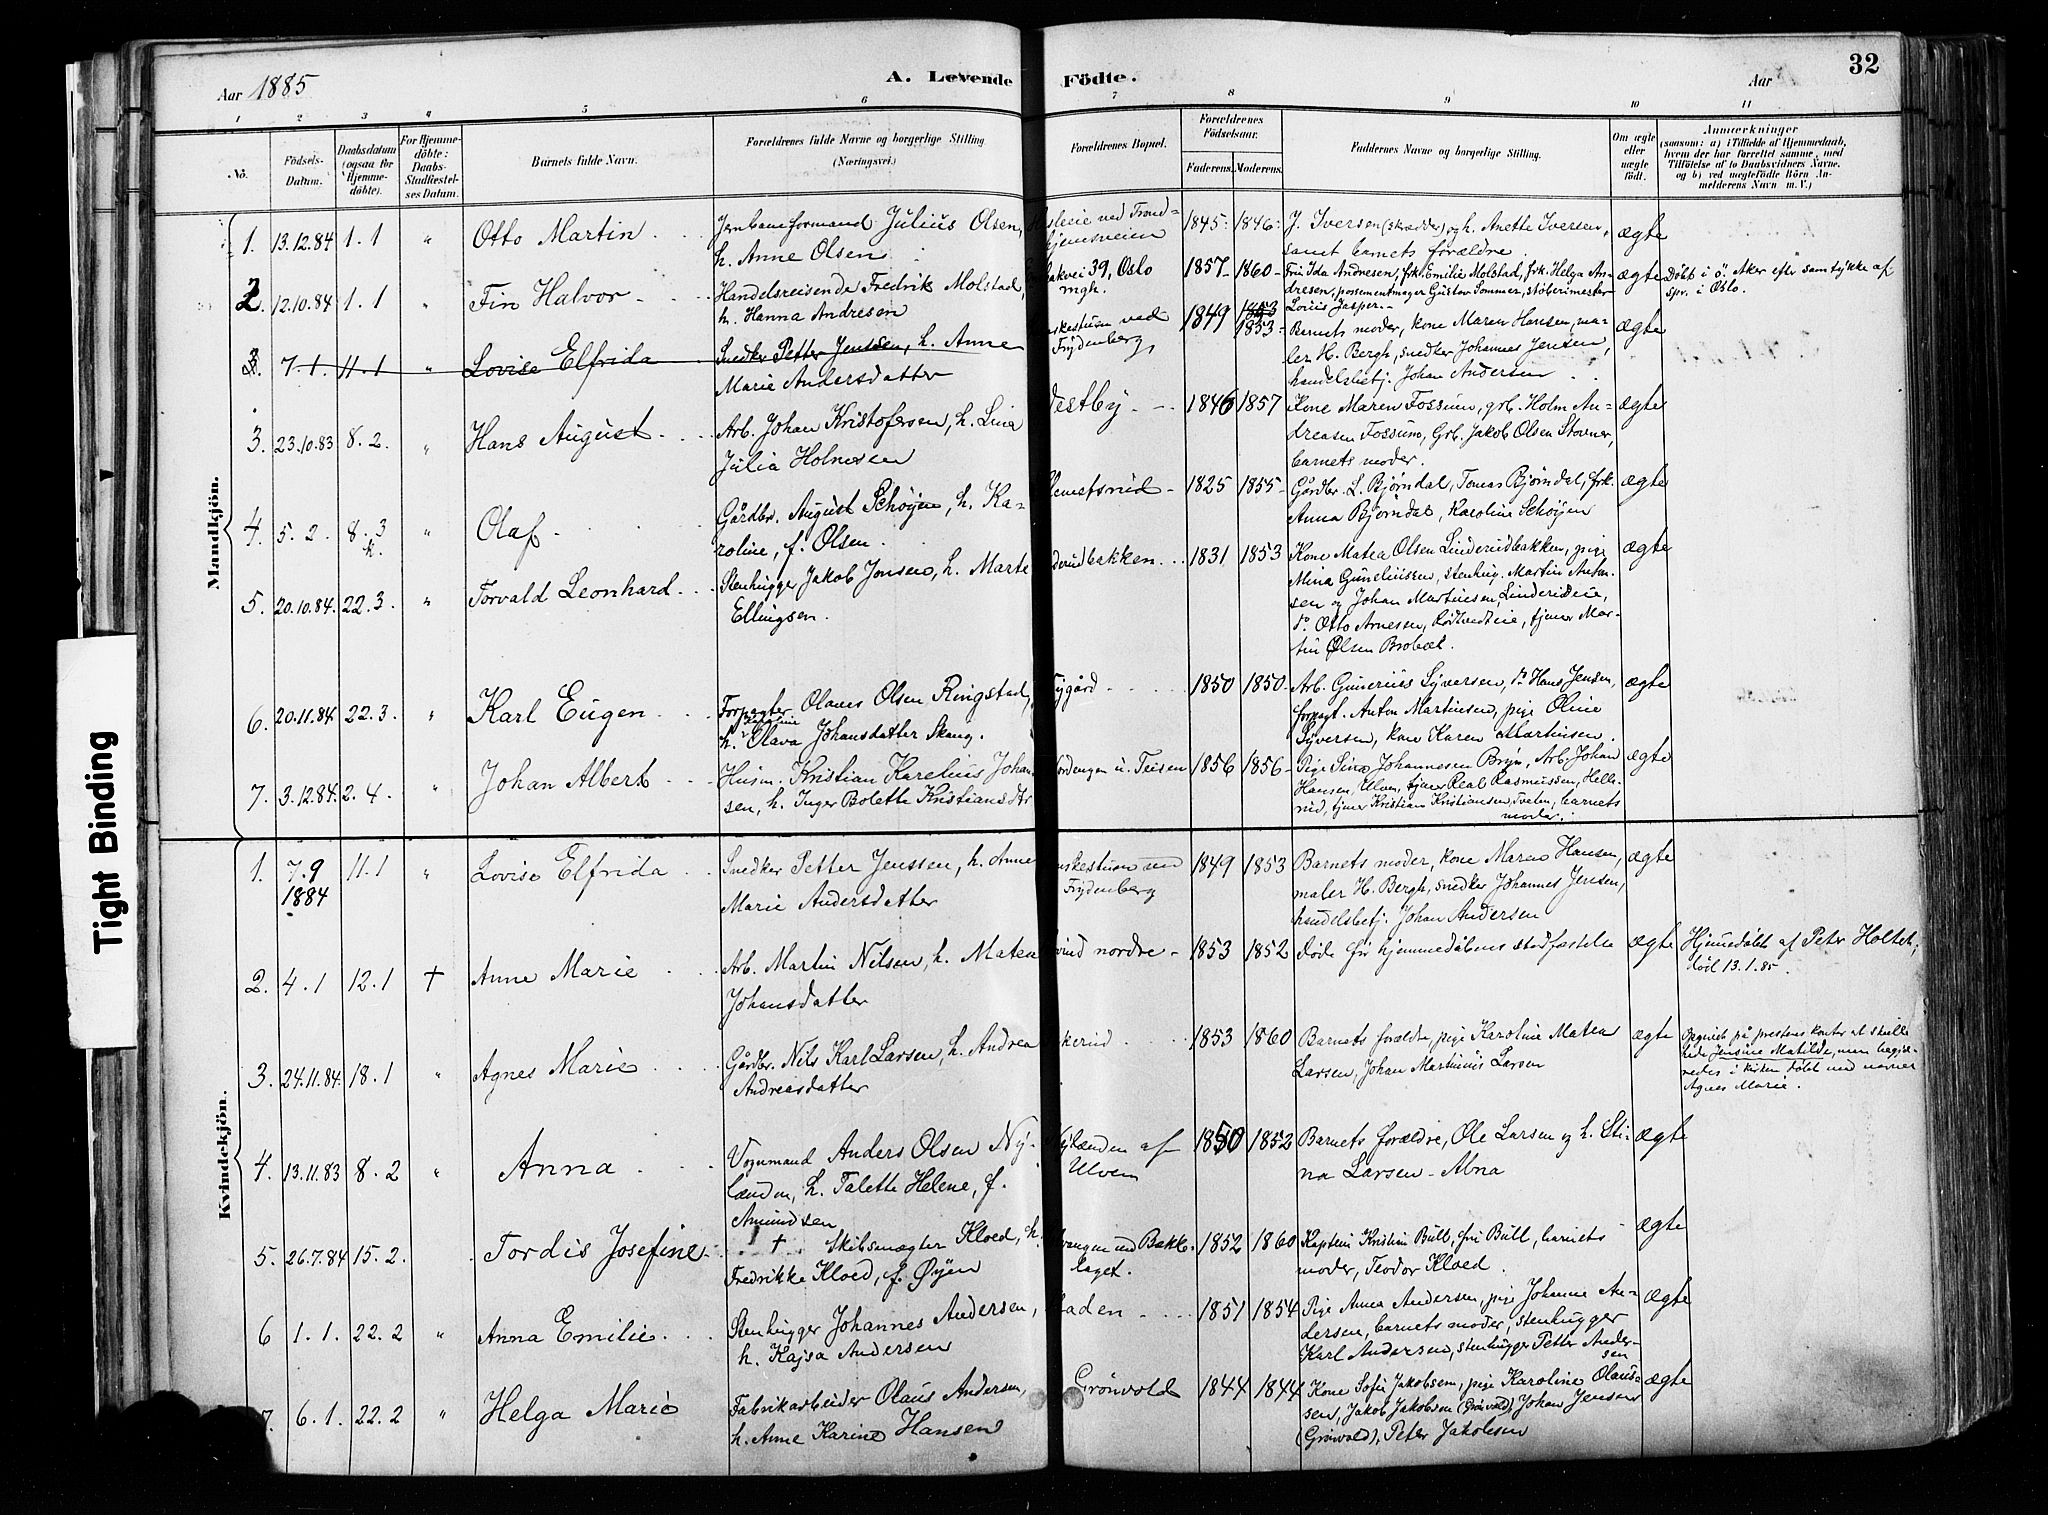 Aar 1885
A. Levende Födte.
Aar
32
1 2 3 4 5 6 7 8 9 10 11
No.
Födsels-
Datum.
Daabsdatum
(ogsaa for
Hjemme-
döbte).
For Hjemme-
döbte:
Daabs-
Stadfæstel-
ses Datum.
Barnets fulde Navn.
Forældrenes fulde Navne og borgerlige Stilling
(Næringsvei.)
Forældrenes Bopæl.
Forældrenes
Födselsaar.
Faderens. Moderens.
Faddernes Navne og borgerlige Stilling.
Om ægte
eller
uægte
født.
Anmærkninger
(saasom: a) i Tilfælde af Hjemmedaab,
hvem der har forrettet samme, med
Tilföielse af to Daabsvidners Navne.
og b) ved uægtefödte Börn An-
melderens Navn m. V.)
Mandkjön.
1. 13.12.84 1.1 " Otto Martin
Jernbaneformand Julius Olsen,
h. Anne Olsen
ved Trond-
hjemsveien
1845 1846
J. Iversen (skrædder) og h. Anette Iversen,
samt barnets forældre
ægte
2. 12.10.84 1.1 " Fin Halvor
Handelsreisende Fredrik Molstad,
h. Hanna Andresen
bakvei 39, Oslo
mgh.
1857 1860
Fru Ida Andresen, frk. Emilie Molstad, frk. Helga An-
dresen, possementmager Gustav Sommer, støberimester
Louis Jasper.
ægte
Døbt i ö. Aker efter samtykke af
spr. i Oslo.
3. 7.1. 11.1 " Lovise Elfrida
Snedker Petter Jenssen, h. Anne
Marie Andersdatter
ved
Frydenberg,
1849 1853
1853
Barnets moder, kone Maren Hansen, ma-
ler H. Bergh, snedker Johannes Jensen,
handelsbetj. Johan Andersen
ægte
3. 23.10.83 8.2. " Hans August
Arb. Johan Kristofersen, h. Lina
Julia Holmsen
Vestby
1846 1857
Kone Maren Fossum, grb. Holm An-
dreasen Fossum, Grb. Jakob Olsen Stovner,
barnets moder.
ægte
4. 5.2. 8.3 " Olaf
k.
Gårdbr. August Schøyen, h. Ka-
roline, f. Olsen
1825 1855
Gårdbr. L. Bjørndal, Tomas Bjørndal, frk.
Anna Bjørndal, Karoline Schøyen
ægte
5. 20.10.84. 22.3. " Torvald Leonhard
Stenhugger Jakob Jonsen, h. Marte
Ellingsen
derudbakken
1831 1853
Kone Matea Olsen Linderudbakken, pige
Mina Gunelinssen, stenhug. Martin Anton-
sen og Johan Martinsen, Linderudeie,
do Otto Arnesen, Rødtvedteie, tjener Mar-
tin Olsen Brobæk.
ægte
6. 20.11.84 22.3. " Karl Eugen
Forpagter Olaves Olsen Ringstad,
h. Olava Johansdatter Skaug.
1850 1850
Arb. Gunerius Syversen, do Hans Jensen,
forpagt. Anton Martinsen, pige Oline
Syversen, kone Karen Martinsen.
ægte
7. 3.12.84. 2.4. " Johan Albert
Husm. Kristian Karelius Johan-
sen, h. Inger Bolette Kristiansdtr
Nordengen u. Teisen
1856 1856
Pige Sina Johannesen Bryn, Arb. Johan
Hansen, Ulven, tjener Karl Rasmussen, Helle-
rud, tjener Kristian Kristiansen, Tveten, barnets
moder.
ægte
Kvindekjön.
1. 7.9 11.1 " Lovise Elfrida
1884
Snedker Petter Jenssen, h. Anne
Marie Andersdatter
ved
Frydenberg
1849 1853
Barnets moder, kone Maren Hansen,
maler H. Bergh, snedker Johannes Jensen,
handelsbetj. Johan Andersen
ægte
2. 4.1 12.1 † Anne Marie
Arb. Martin Nilsen, h. Matea
Johansdatter
nordre
1853 1852
Døde før hjemmedåbens stadfæstelse
ægte
Hjemmedøbt af Peter Holteh,
død 13.1.85.
3. 24.11.84. 18.1 " Agnes Marie
Gårdbr. Nils Karl Larsen, h. Andrea
Andreasdatter
kerud
1853 1860
Barnets forældre, pige Karoline Matea
Larsen, Johan Martinius Larsen
ægte
Opgivet på prestens kontor at skulle
hede Jensine Matilde, men begjæ-
redes i kirken døbt med navnet
Agnes Marie.
4. 13.11.83 8.2 " Anna
Vognmand Anders Olsen Ny-
lænden, h. Talette Helene, f.
Amundsen
Nylænden af
Ulven
1850 1852
Barnets forældre, Ole Larsen og h. Sti-
na Larsen - Abna
ægte
5. 26.7.84 15.2. Tordis Josefine
† Skibsmægler Kloed, h.
Fredrikke Kloed, f. Øyen
vangen ved Bække-
laget.
1852 1860
Kaptein Kristian Bull, fru Bull, barnets
moder, Teodor Kloed.
ægte
6 1.1. 22.2 " Anna Emilie
Stenhugger Johannes Andersen,
h. Kajsa Andersen
laden
1851 1854
Pige Anna Andersen, pige Johanne An-
dersen, barnets moder, stenhugger
Karl Andersen, stenhugger Petter Ander-
sen
ægte
7. 6.1. 22.2 " Helga Marie
Fabrikarbeider Olaus Andersen,
h. Anne Karine Hansen
Grönvold
1844 1844
Kone Sofie Jakobsen, pige Karoline Olaus-
sen, Jakob Jakobsen (Grønvold), Johan Jensen
(Grønvold), Peter Jakobsen
ægte
Tight Binding